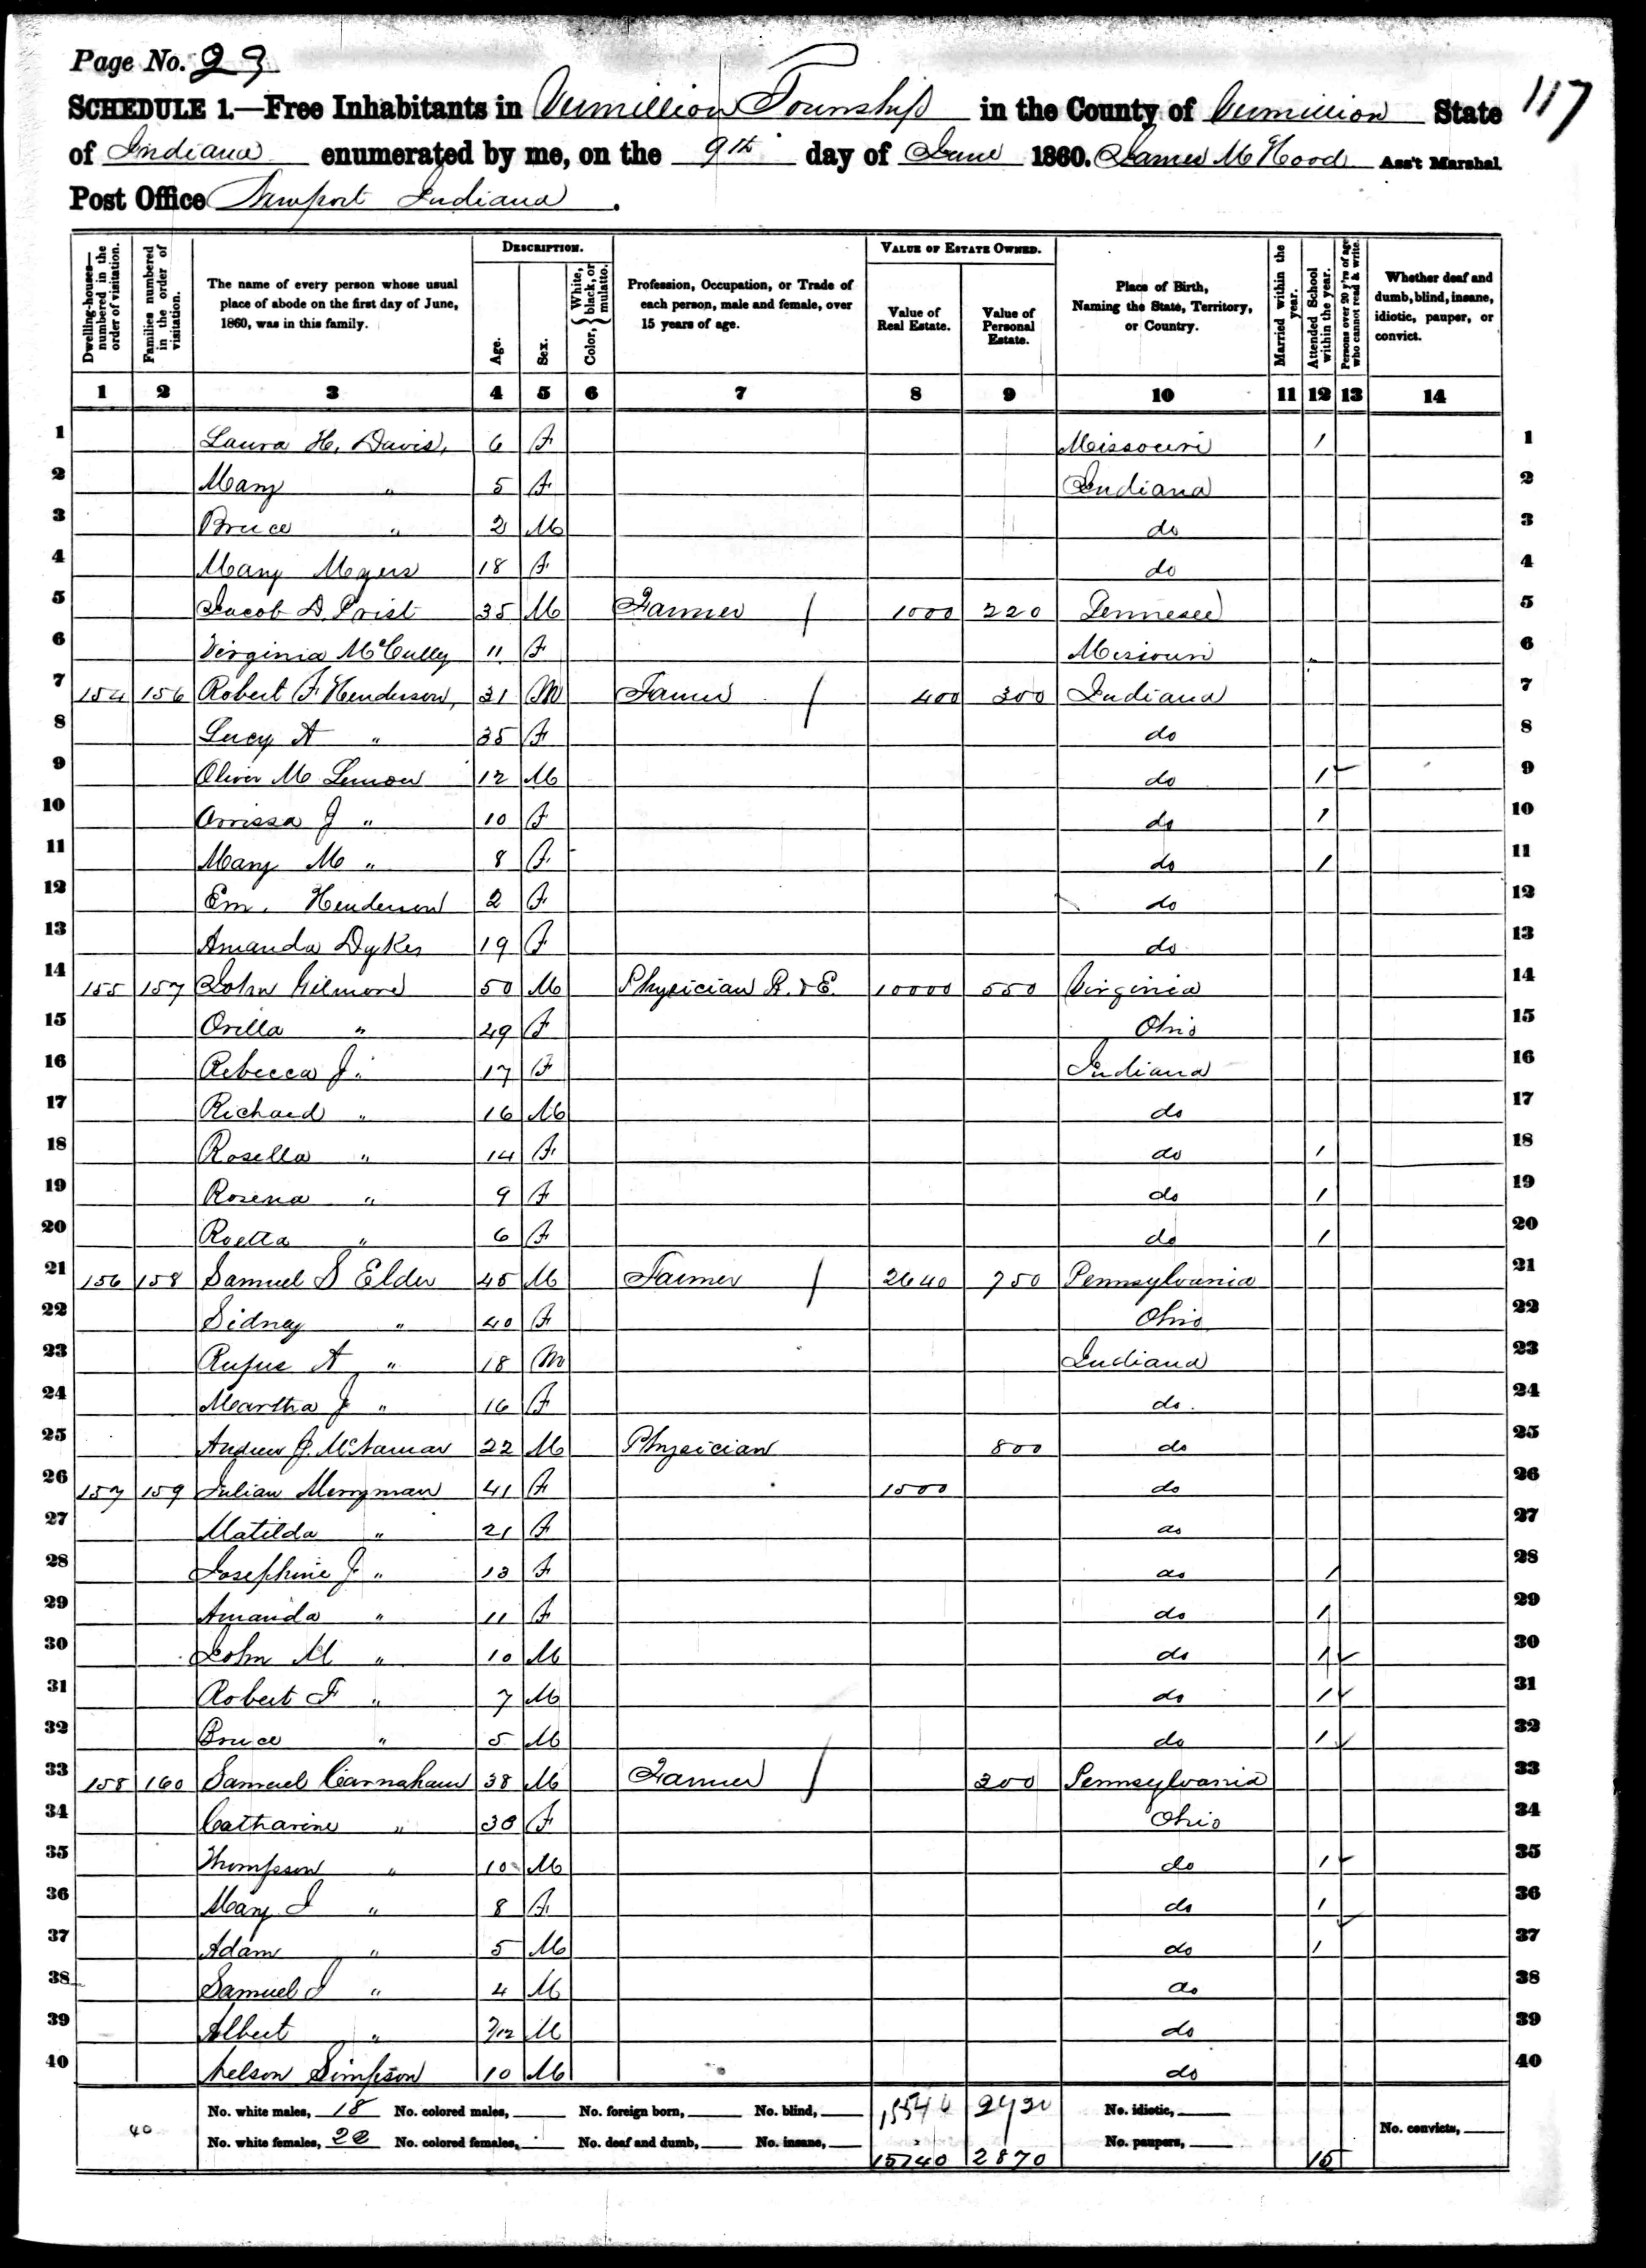 Page No. 23
117
SCHEDULE 1.—Free Inhabitants in Vermillion Township in the County of Vermillion State
of Indiana enumerated by me, on the 9th day of June 1860. James M Hood Ass't Marshal
Post Office Newport Indiana.
Dwelling-houses—numbered in the order of visitation. Families numbered in the order of visitation. The name of every person whose usual place of abode on the first day of June, 1860, was in this family. DESCRIPTION. Age. Sex. Color, { White, black, or mulatto. Profession, Occupation, or Trade of each person, male and female, over 15 years of age. VALUE OF ESTATE OWNED. Value of Real Estate. Value of Personal Estate. Place of Birth, Naming the State, Territory, or Country. Married within the year. Attended School within the year. Persons over 20 y'rs of age who cannot read & write. Whether deaf and dumb, blind, insane, idiotic, pauper, or convict.
1 2 3 4 5 6 7 8 9 10 11 12 13 14
1 Laura H. Davis, 6 F Missouri / 1
2 Mary " 5 F Indiana 2
3 Bruce " 2 M do 3
4 Mary Meyers 18 F do 4
5 Jacob D. Prist 35 M Farmer / 1000 220 Tennesee 5
6 Virginia McCully 11 F Missouri 6
7 154 156 Robert F Henderson, 31 M Farmer / 400 300 Indiana 7
8 Lucy A " 35 F do 8
9 Oliver M Lemon 12 M do / ✓ 9
10 Orrissa J " 10 F do / 10
11 Mary M " 8 F do / 11
12 Em. Henderson 2 F do 12
13 Amanda Dykes 19 F do 13
14 155 157 John Gilmore 50 M Physician R. & E. 10000 550 Virginia 14
15 Orilla " 49 F Ohio 15
16 Rebecca J. " 17 F Indiana 16
17 Richard " 16 M do 17
18 Rosella " 14 F do / 18
19 Rosena " 9 F do / 19
20 Roetta " 6 F do / 20
21 156 158 Samuel S Elder 45 M Farmer / 2640 750 Pennsylvania 21
22 Sidney " 40 F Ohio 22
23 Rufus A " 18 M Indiana 23
24 Martha J " 16 F do. 24
25 Andrew J. McNamar 22 M Physician 800 do 25
26 157 159 Julian Merryman 41 F 1500 do 26
27 Matilda " 21 F do 27
28 Josephine J " 13 F do / 28
29 Amanda " 11 F do / 29
30 John M " 10 M do / ✓ 30
31 Robert F " 7 M do / ✓ 31
32 Bruce " 5 M do / ✓ 32
33 158 160 Samuel Carnahan 38 M Farmer / 200 Pennsylvania 33
34 Catharine " 38 F Ohio 34
35 Thompson " 10 M do / ✓ 35
36 Mary I " 8 F do / 36
37 Adam " 5 M do / ✓ 37
38 Samuel I " 4 M do 38
39 Albert " 7/12 M do 39
40 Nelson Simpson 10 M do 40
40 No. white males, 18 No. colored males, No. foreign born, No. blind, 15540 2420 No. idiotic, No. convicts,
No. white females, 22 No. colored females, No. deaf and dumb, No. insane, No. paupers,
15740 2870 15